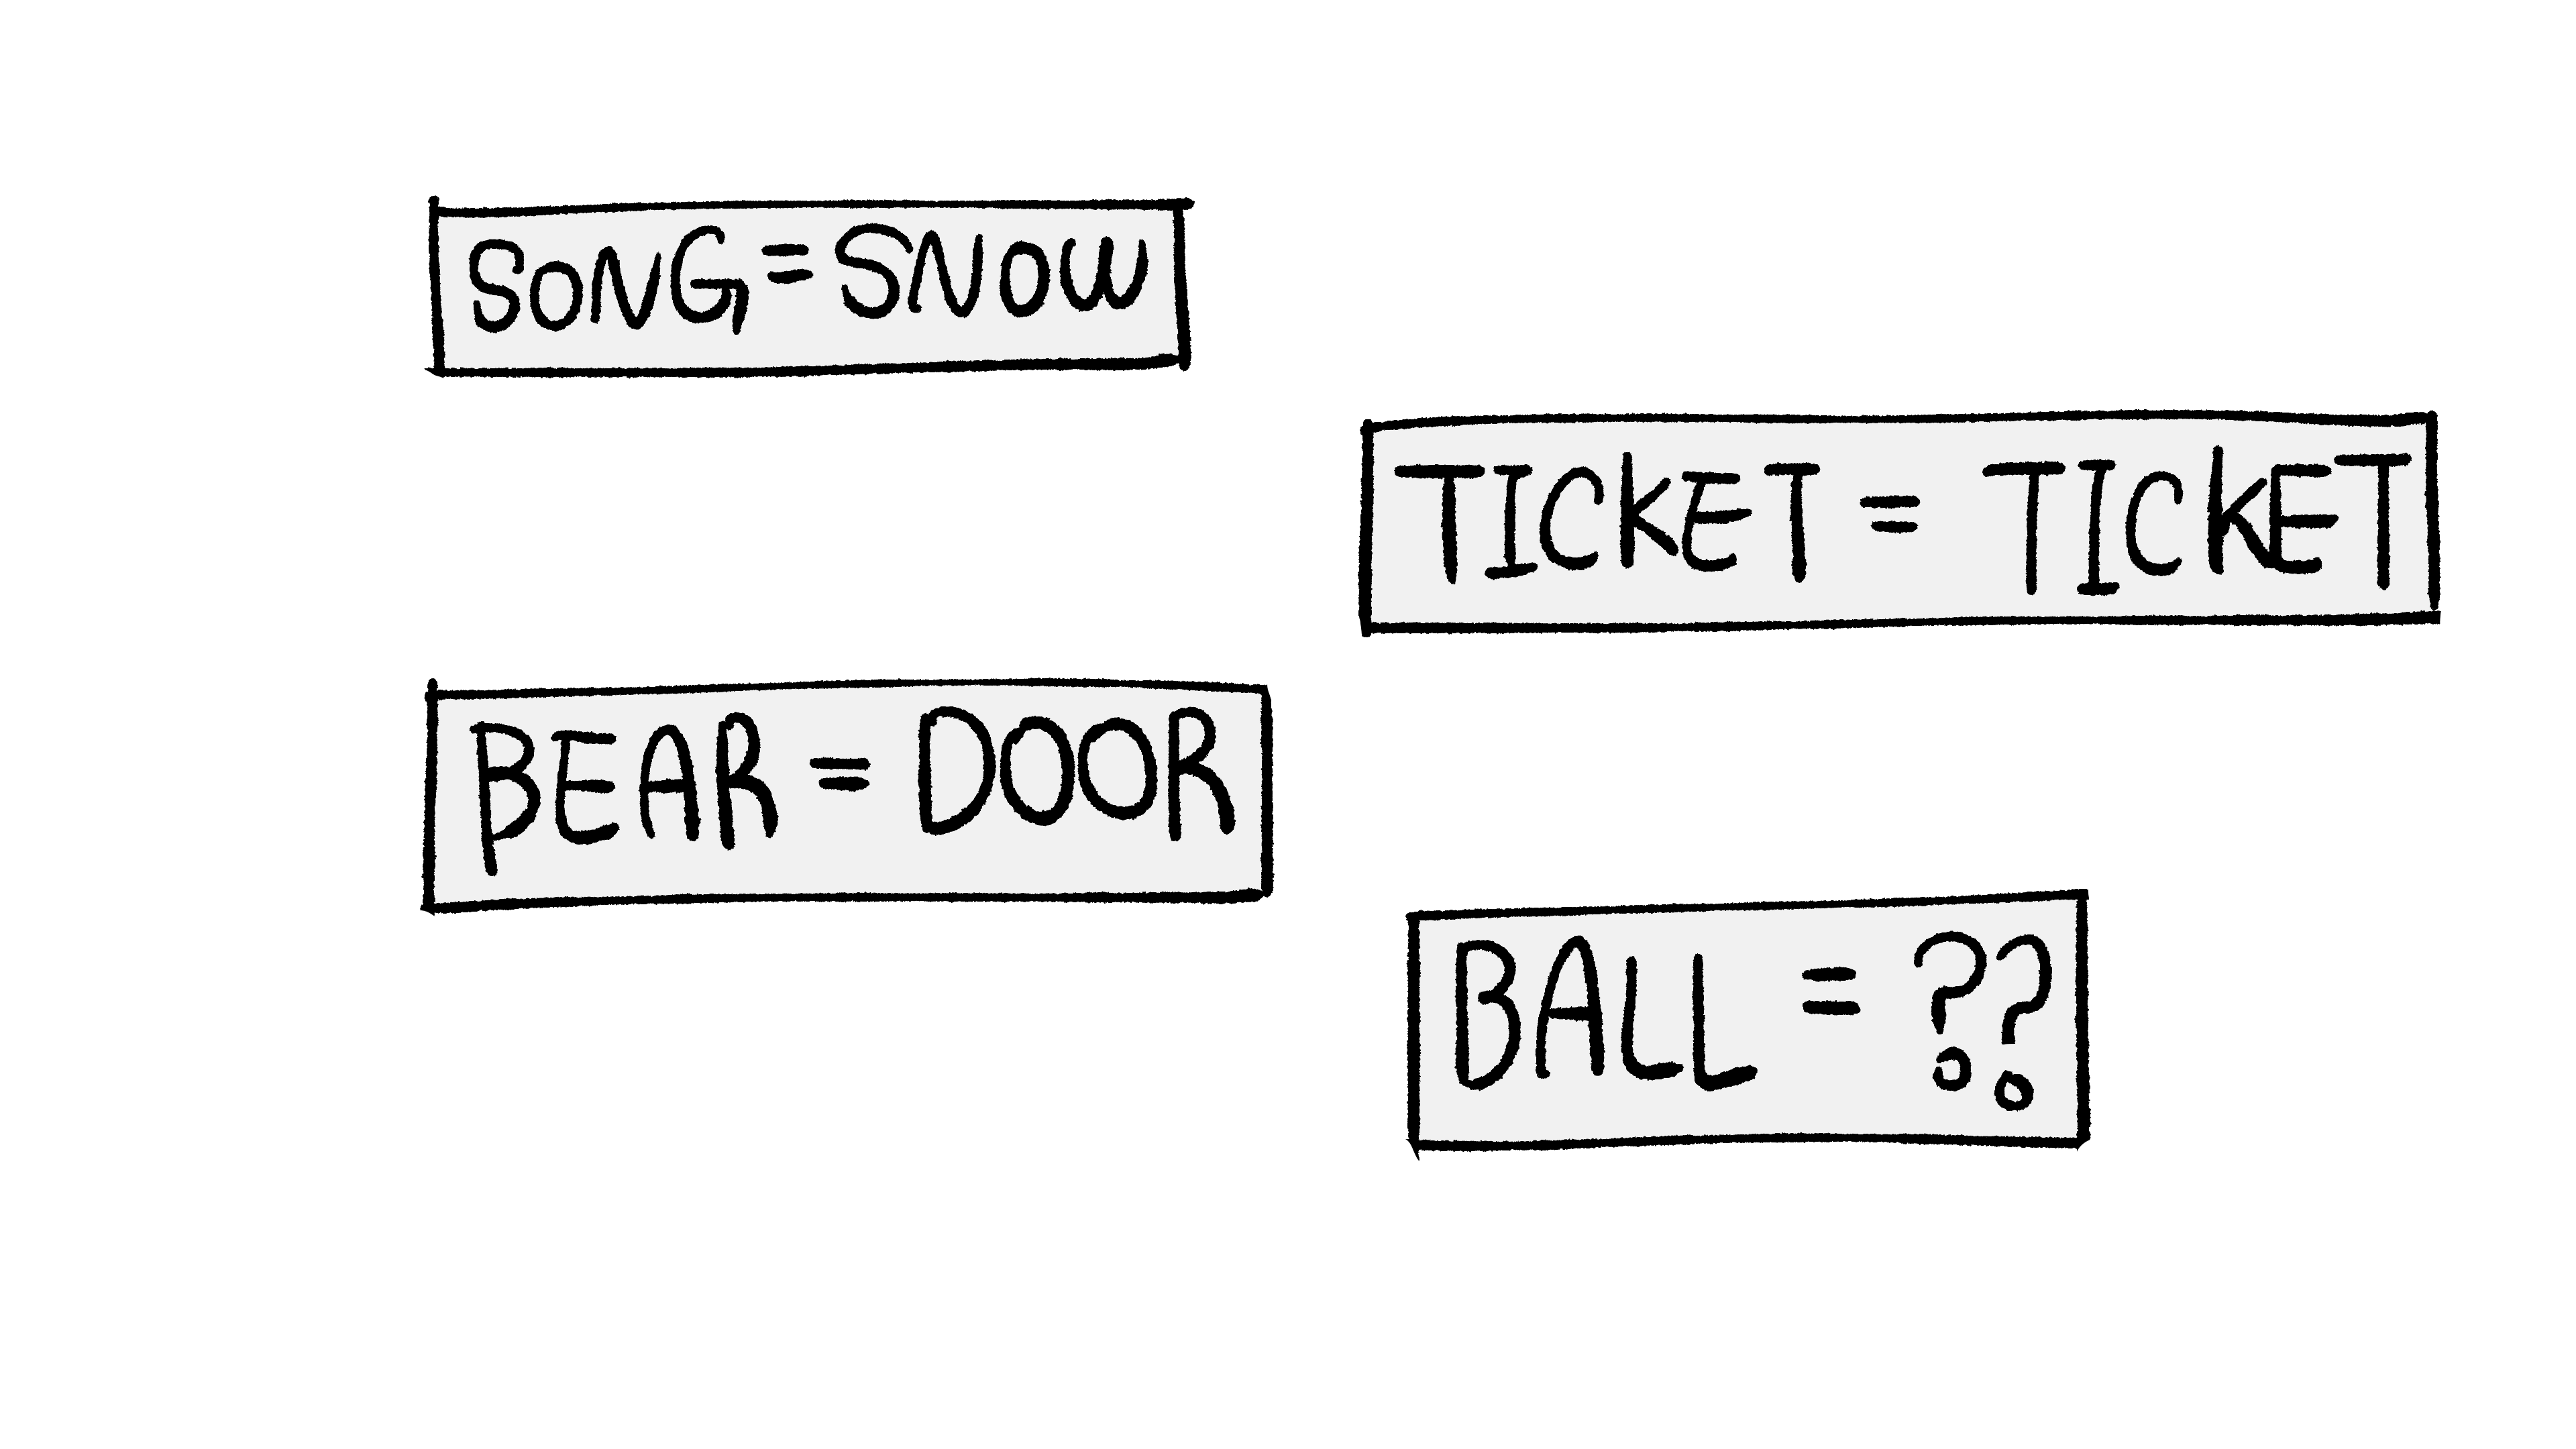 SONG = SNOW
TICKET = TICKET
BEAR = DOOR
BALL = ??